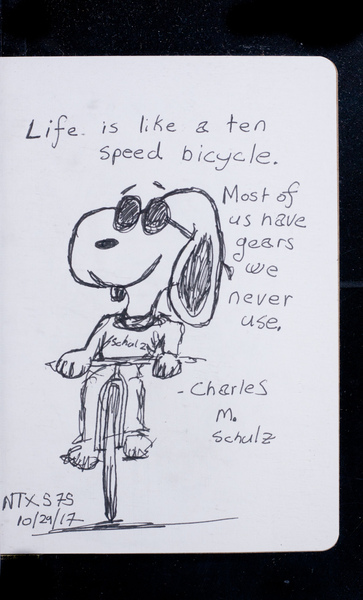 Life is like a ten
speed bicycle.
Most of
us have
gears
we
never
use.
- Charles
M.
Schulz
Schulz
NTXS75
10/29/17